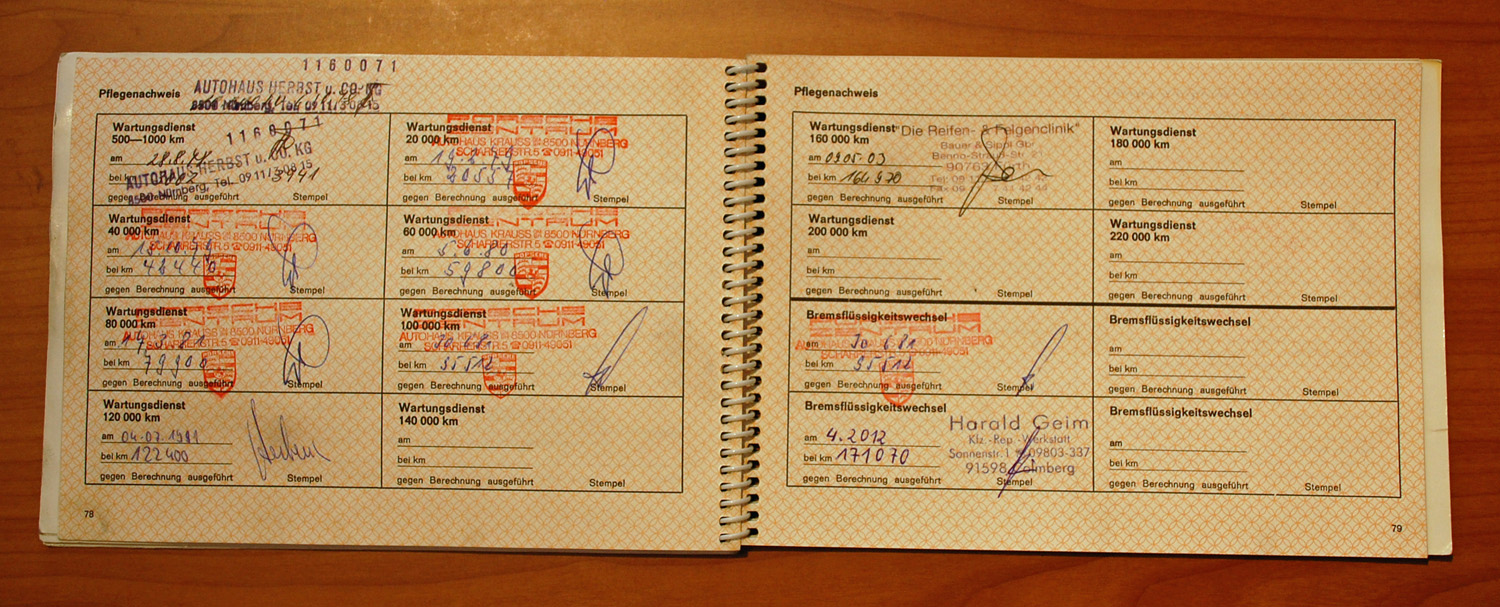 1160071
Pflegenachweis
AUTOHAUS HERBST u. CO. KG
8500 Nürnberg, Tel. 09 11/3 08 15
Wartungsdienst
500—1000 km
1160071
am 28.8.78
AUTOHAUS HERBST u. CO. KG
bei km
8500 Nürnberg, Tel. 09 11/3 08 15
gegen Berechnung ausgeführt Stempel
Wartungsdienst
20 000 km
ZENTRUM
AUTOHAUS KRAUSS 8500 NÜRNBERG
SCHARRERSTR. 5 ☎ 0911-49051
am
bei km 20557
PORSCHE
gegen Berechnung ausgeführt Stempel
Wartungsdienst
40 000 km
AUTOHAUS KRAUSS 8500 NÜRNBERG
SCHARRERSTR. 5 ☎ 0911-49051
am 15.10.79
bei km
gegen Berechnung ausgeführt Stempel
Wartungsdienst
60 000 km
AUTOHAUS KRAUSS 8500 NÜRNBERG
SCHARRERSTR. 5 ☎ 0911-49051
am 5.6.80
bei km 59800
gegen Berechnung ausgeführt Stempel
Wartungsdienst
80 000 km
AUTOHAUS KRAUSS 8500 NÜRNBERG
SCHARRERSTR. 5 ☎ 0911-49051
am
bei km 79900
gegen Berechnung ausgeführt Stempel
Wartungsdienst
100 000 km
ZENTRUM
AUTOHAUS KRAUSS 8500 NÜRNBERG
SCHARRERSTR. 5 ☎ 0911-49051
am
bei km 95512
gegen Berechnung ausgeführt Stempel
Wartungsdienst
120 000 km
am 04.07.1991
bei km 122400
gegen Berechnung ausgeführt Stempel
Wartungsdienst
140 000 km
am
bei km
gegen Berechnung ausgeführt Stempel
78
Pflegenachweis
Wartungsdienst
160 000 km
"Die Reifen- & Felgenclinik"
Bauer & Sippl GbR
am 09.05.03
90763
bei km 164970
gegen Berechnung ausgeführt Stempel
Wartungsdienst
180 000 km
am
bei km
gegen Berechnung ausgeführt Stempel
Wartungsdienst
200 000 km
am
bei km
gegen Berechnung ausgeführt Stempel
Wartungsdienst
220 000 km
am
bei km
gegen Berechnung ausgeführt Stempel
Bremsflüssigkeitswechsel
ZENTRUM
AUTOHAUS KRAUSS 8500 NÜRNBERG
SCHARRERSTR. 5 ☎ 0911-49051
am 30.6.81
bei km 95512
gegen Berechnung ausgeführt Stempel
Bremsflüssigkeitswechsel
am
bei km
gegen Berechnung ausgeführt Stempel
Bremsflüssigkeitswechsel
Harald Geim
am 4.2012
Kfz.-Rep.-Werkstatt
Sonnenstr. 1 ☎ 09803-337
bei km 171070
91598 Colmberg
gegen Berechnung ausgeführt Stempel
Bremsflüssigkeitswechsel
am
bei km
gegen Berechnung ausgeführt Stempel
79